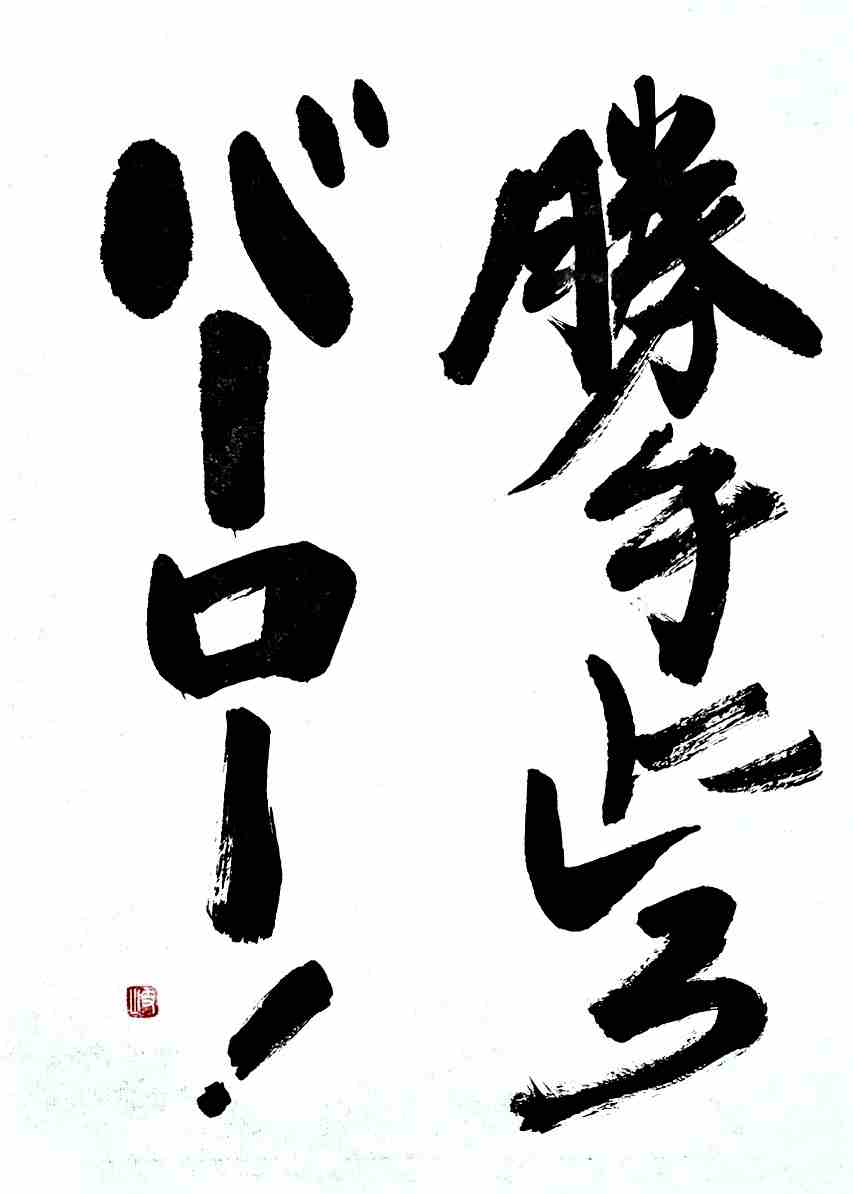 勝手にしろ
バーロー！